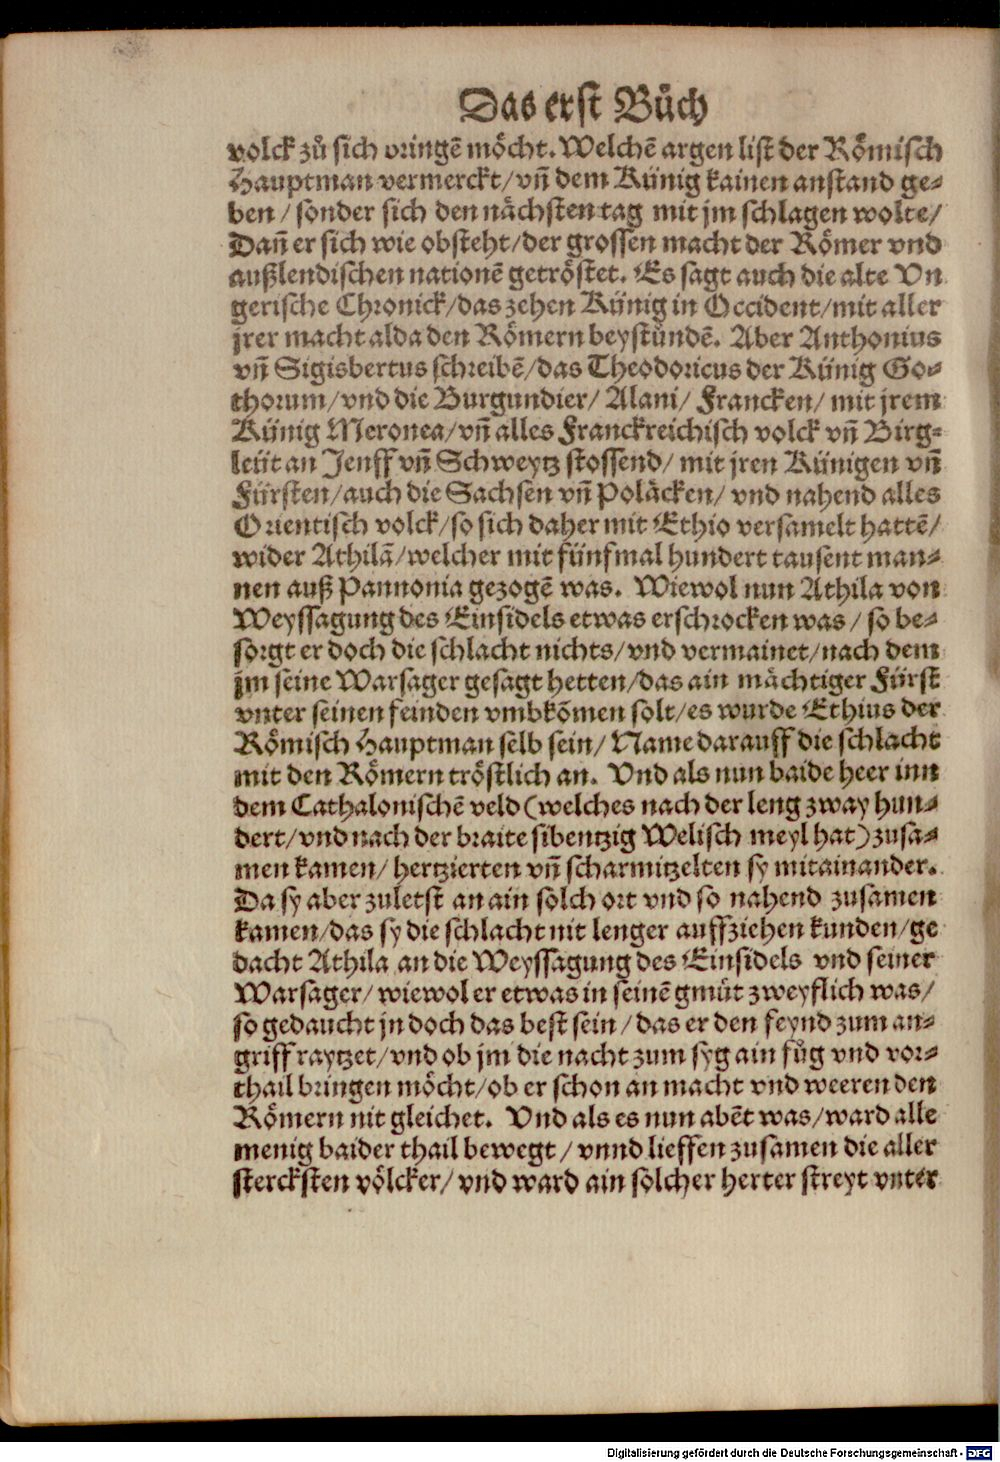 Das erst Bůch
volck zů sich bringẽ möcht. Welchẽ argen list der Römisch
Hauptman vermerckt/ vñ dem Künig kainen anstand ge-
ben / sonder sich den nächsten tag mit jm schlagen wolte/
Dañ er sich wie obsteht/ der grossen macht der Römer vnd
außlendischen nationẽ getröstet. Es sagt auch die alte Vn
gerische Chronick/ das zehen Künig in Occident/ mit aller
jrer macht alda den Römern beystündẽ. Aber Anthonius
vñ Sigisbertus schreibẽ/ das Theodoricus der Künig Go-
thorum/ vnd die Burgundier/ Alani/ Francken/ mit jrem
Künig Meronea/ vñ alles Franckreichisch volck vñ Birg-
leüt an Jenff vñ Schweytz stossend/ mit jren Künigen vñ
Fürsten/ auch die Sachsen vñ Poläcken/ vnd nahend alles
Orientisch volck/ so sich daher mit Ethio versamelt hattẽ/
wider Athilã/ welcher mit fünfmal hundert tausent man-
nen auß Pannonia gezogẽ was. Wiewol nun Athila von
Weyssagung des Einsidels etwas erschrocken was / so be-
sorgt er doch die schlacht nichts/ vnd vermainet/ nach dem
jm seine Warsager gesagt hetten/ das ain mächtiger Fürst
vnter seinen feinden vmbkõmen solt/ es wurde Ethius der
Römisch Hauptman selb sein/ Name darauff die schlacht
mit den Römern tröstlich an. Vnd als nun baide heer inn
dem Cathalonischẽ veld (welches nach der leng zway hun-
dert/ vnd nach der braite sibentzig Welisch meyl hat) zusa-
men kamen/ hertzierten vñ scharmitzelten sy mitainander.
Da sy aber zuletst an ain solch ort vnd so nahend zusamen
kamen/ das sy die schlacht nit lenger auffziehen kunden/ ge
dacht Athila an die Weyssagung des Einsidels vnd seiner
Warsager/ wiewol er etwas in seinẽ gmüt zweyflich was/
so gedaucht jn doch das best sein / das er den feynd zum an-
griff raytzet/ vnd ob jm die nacht zum syg ain fůg vnd vor-
thail bringen möcht/ ob er schon an macht vnd weeren den
Römern nit gleichet. Vnd als es nun abẽt was/ ward alle
menig baider thail bewegt / vnnd lieffen zusamen die aller
stercksten völcker/ vnd ward ain solcher herter streyt vnter
Digitalisierung gefördert durch die Deutsche Forschungsgemeinschaft - DFG